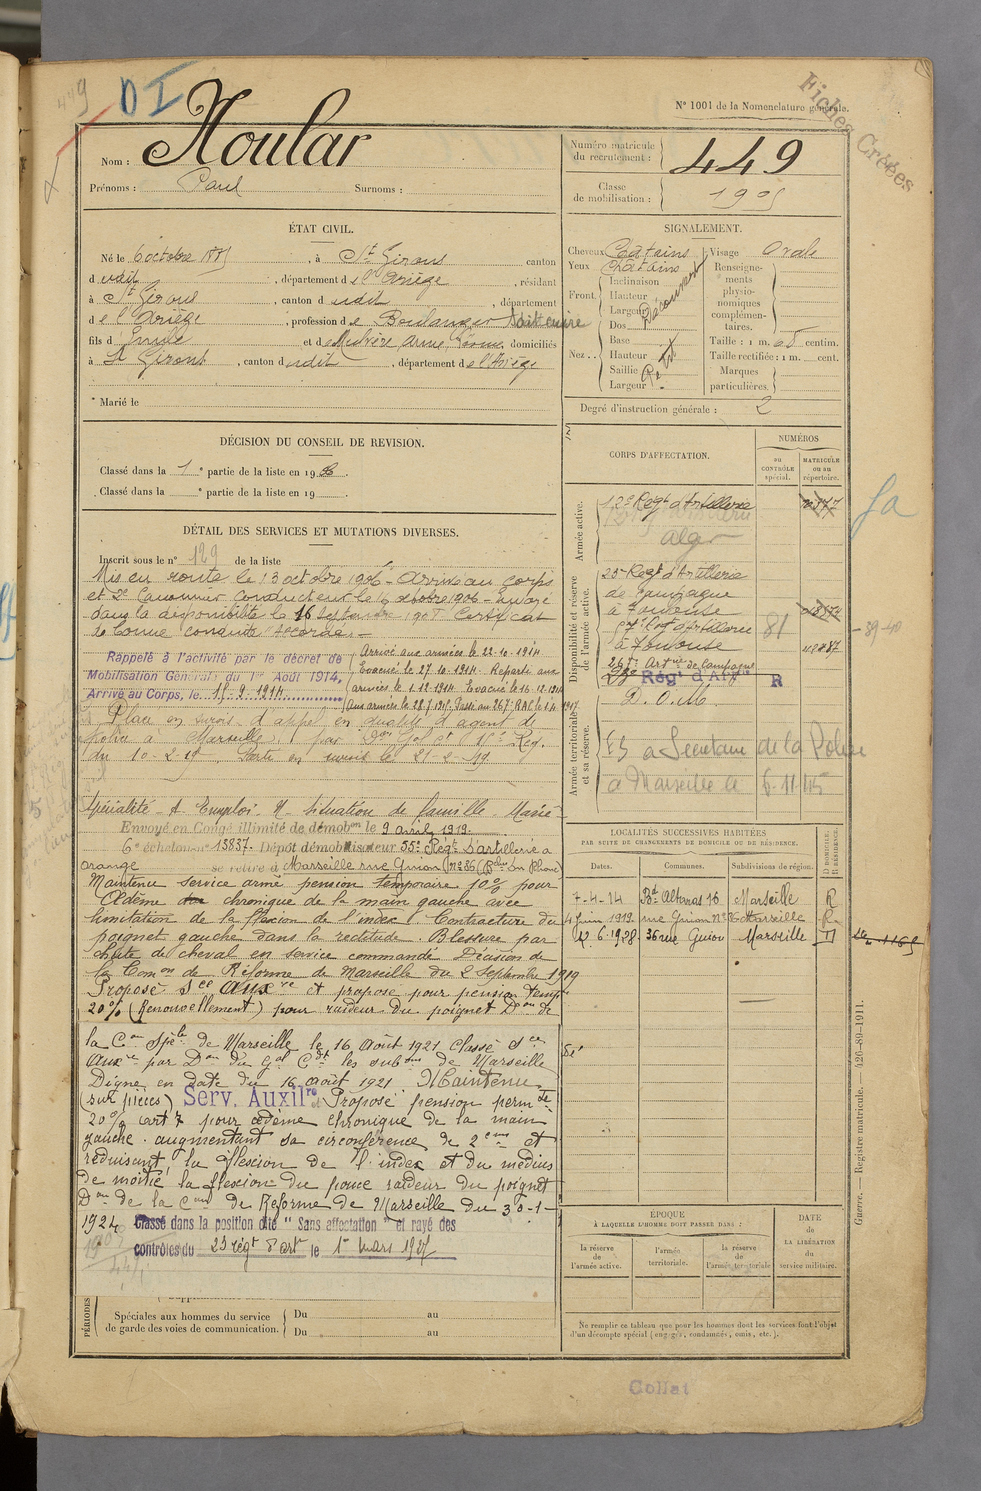 449
D I
Fiches Créées
N° 1001 de la Nomenclature générale.
Nom : Hoular
Prénoms : Paul Surnoms :
Numéro matricule du recrutement : 449
Classe de mobilisation : 1905
ÉTAT CIVIL.
Né le 6 octobre 1885, à St Girons canton
dudit, département de l'Ariège, résidant
à St Girons, canton dudit, département
de l'Ariège, profession de Boulanger
fils d'Emile et de domiciliés
à St Girons, canton dudit, département de l'Ariège
* Marié le
SIGNALEMENT.
Cheveux Châtains Visage Ovale
Yeux Châtains
Front. Inclinaison Hauteur Largeur Découvert
Nez. Dos Base Hauteur Saillie Largeur Petit
Renseignements physionomiques complémentaires.
Taille : 1 m. 65 centim.
Taille rectifiée : 1 m. cent.
Marques particulières.
Degré d'instruction générale : 2
DÉCISION DU CONSEIL DE REVISION.
Classé dans la 1e partie de la liste en 1906.
Classé dans la e partie de la liste en 19 .
DÉTAIL DES SERVICES ET MUTATIONS DIVERSES.
Inscrit sous le n° 129 de la liste
Mis en route le 13 octobre 1906 - Arrivé au corps
et 2e Canonnier Conducteur le octobre 1906 - Envoyé
dans la disponibilité le 16 septembre 1908 Certificat
de bonne conduite "Accordé" -
Rappelé à l'activité par le décret de
Mobilisation Générale du 1er Août 1914,
Arrivé au Corps, le 1914
Arrivé aux armées le 22.10.1914
Evacué le 27.10.1914. Reparti aux
armées le 1.12.1914 Evacué le 16.12.1914
Placé en sursis d'appel en qualité d'agent de
Police à Marseille, par Gal Ct 15e Reg.
du 10-2-19. Parti en sursis le 21-2-19
Spécialité - A - Emploi - N - Situation de famille - Marié
Envoyé en Congé illimité de démobon le 9 avril 1919.
6e échelon n° 13837. Dépôt démobilisateur 55e Régt d'artillerie à
orange se retire à Marseille rue Guion n° 36 (Bches du Rhône)
Maintenu service armé pension temporaire 10% pour
Œdème chronique de la main gauche avec
limitation de la flexion de l'index. Contracture du
poignet gauche dans la rectitude. Blessure par
chute de cheval en service commandé Décision de
la Comon de Réforme de Marseille du 2 Septembre 1919
Proposé Sce Auxre et proposé pour pension temp.
20% (Renouvellement) pour raideur du poignet Don de
la Con Spéle de Marseille le 16 Août 1921 classé Sce
Auxre par Don du Gal Cdt les subons de Marseille
Digne en date du 16 août 1921. Maintenu
(sur pièces) Serv. Auxilre et Proposé pension permte
20% art 7 pour œdème chronique de la main
gauche augmentant sa circonférence de 2 cms et
réduisant la flexion de l'index et du médius
de moitié la flexion du pouce raideur du poignet
Don de la Con de Réforme de Marseille du 30-1-
1924 Classé dans la position dite "Sans affectation" et rayé des
contrôles du 23 régt d'art le 1er mars 1927
PÉRIODES
Spéciales aux hommes du service de garde des voies de communication. Du au
Du au
CORPS D'AFFECTATION.
NUMÉROS
au CONTRÔLE spécial.
MATRICULE ou au répertoire.
Armée active.
12e Régt d'Artillerie
Alger
Disponibilité et réserve de l'armée active.
23e Régt d'Artillerie
de campagne
à Toulouse
à Toulouse
81
23e Régt d'Artie R
D.O.M.
Armée territoriale et sa réserve.
ES à Secrétaire de la Police
à Marseille le 6-11-15
39-40
LOCALITÉS SUCCESSIVES HABITÉES
PAR SUITE DE CHANGEMENTS DE DOMICILE OU DE RÉSIDENCE.
Dates. Communes. Subdivisions de région. D DOMICILE. R RÉSIDENCE.
7-4-14 Bd Altaras 16 Marseille R
4 Juin 1919 rue Guion n° 36 Marseille R
12.6.1928 36 rue Guion Marseille D
ÉPOQUE
À LAQUELLE L'HOMME DOIT PASSER DANS :
la réserve de l'armée active.
l'armée territoriale.
la réserve de l'armée territoriale
DATE de LA LIBÉRATION du service militaire.
Ne remplir ce tableau que pour les hommes dont les services font l'objet
d'un décompte spécial (engagés, condamnés, omis, etc.).
Guerre. — Registre matricule. — 426-89-1911.
Collat